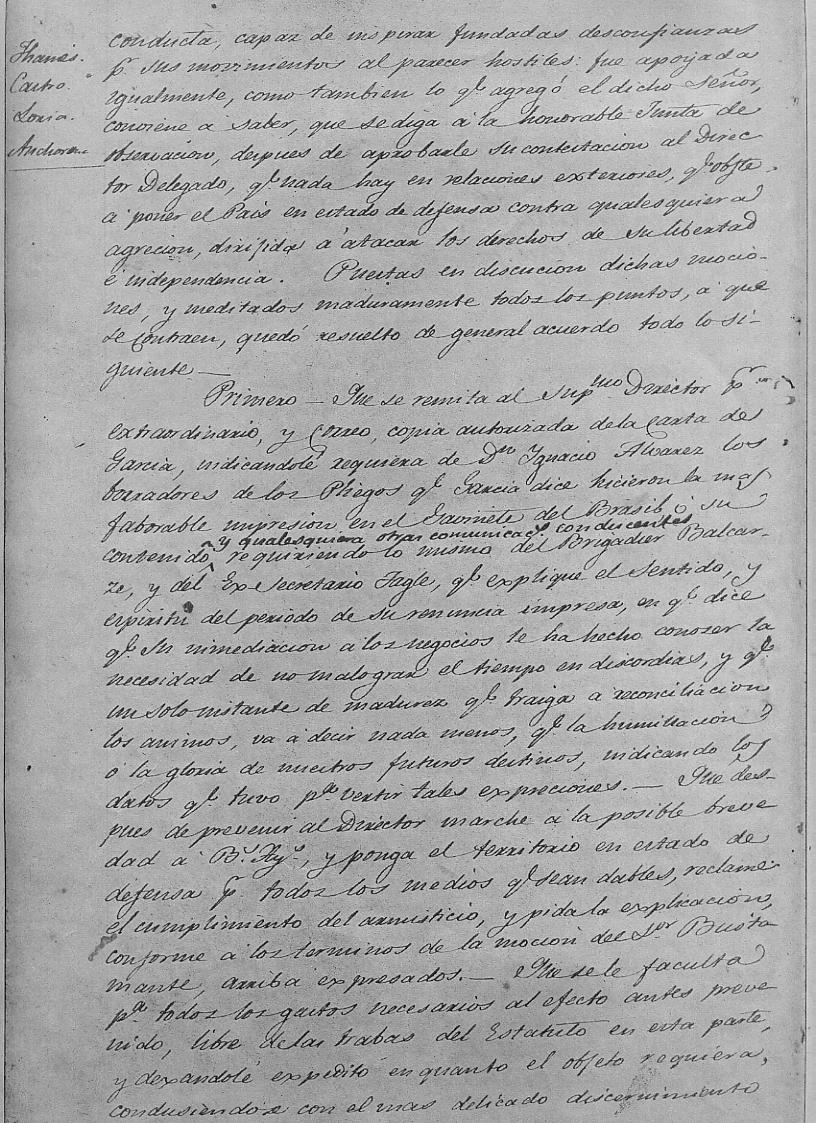 Thames.
Castro.
Loria.
Anchorena
conducta, capaz de inspirar fundadas desconfianzas
pr. sus movimientos al parecer hostiles: fue apoyada
igualmente, como tambien lo qe. agregó el dicho Señor,
conviene à saber, que se diga à la honorable Junta de
observacion, despues de aprobarle su contestacion al Direc
tor Delegado, qe. nada hay en relaciones exteriores, qe. obste
a poner el Pais en estado de defensa contra qualesquiera
agrecion, dirijida à atacar los derechos de su libertad
è independencia. Puestas en discucion dichas mocio-
nes, y meditados maduramente todos los puntos, à que
se contraen, quedó resuelto de general acuerdo todo lo si-
guiente —
Primero — Que se remita al Supmo Director pr
extraordinario, y Correo, copia autorizada de la Carta de
Garcia, indicandolé requiera de Dn Ygnacio Alvarez los
borradores de los Pliegos qe. Garcia dice hicieron la mas
faborable impresion en el Gavinete del Brasil ò su
y qualesquiera otras comunicacs. conducentes
contenido, requiriendo lo mismo del Brigadier Balcar-
ze, y del Ex Secretario Tagle, qe. explique el sentido, y
espiritu del periodo de su renuncia impresa, en qe. dice
qe. su inmediacion à los negocios le ha hecho conozer la
necesidad de no malograr el tiempo en discordias, y qe.
un solo instante de madurez qe. traiga a reconciliacion
los animos, va à decir nada menos, qe. la humillacion
ò la gloria de nuestros futuros destinos, indicando los
datos qe. tuvo pa. vertir tales expreciones. — Que des-
pues de prevenir al Director marche à la posible breve
dad à Bs. Ays., y ponga el territorio en estado de
defensa pr. todos los medios qe. sean dables, reclame
el cumplimiento del armisticio, y pida la explicacion,
conforme à los terminos de la mocion del Sor Busta
mante, arriba expresados. — Que se le faculta
pa. todos los gastos necesarios al efecto antes preve
nido, libre de las trabas del Estatuto en esta parte,
y dexandolé expedito en quanto el objeto requiera,
condusiendose con el mas delicado discernimiento